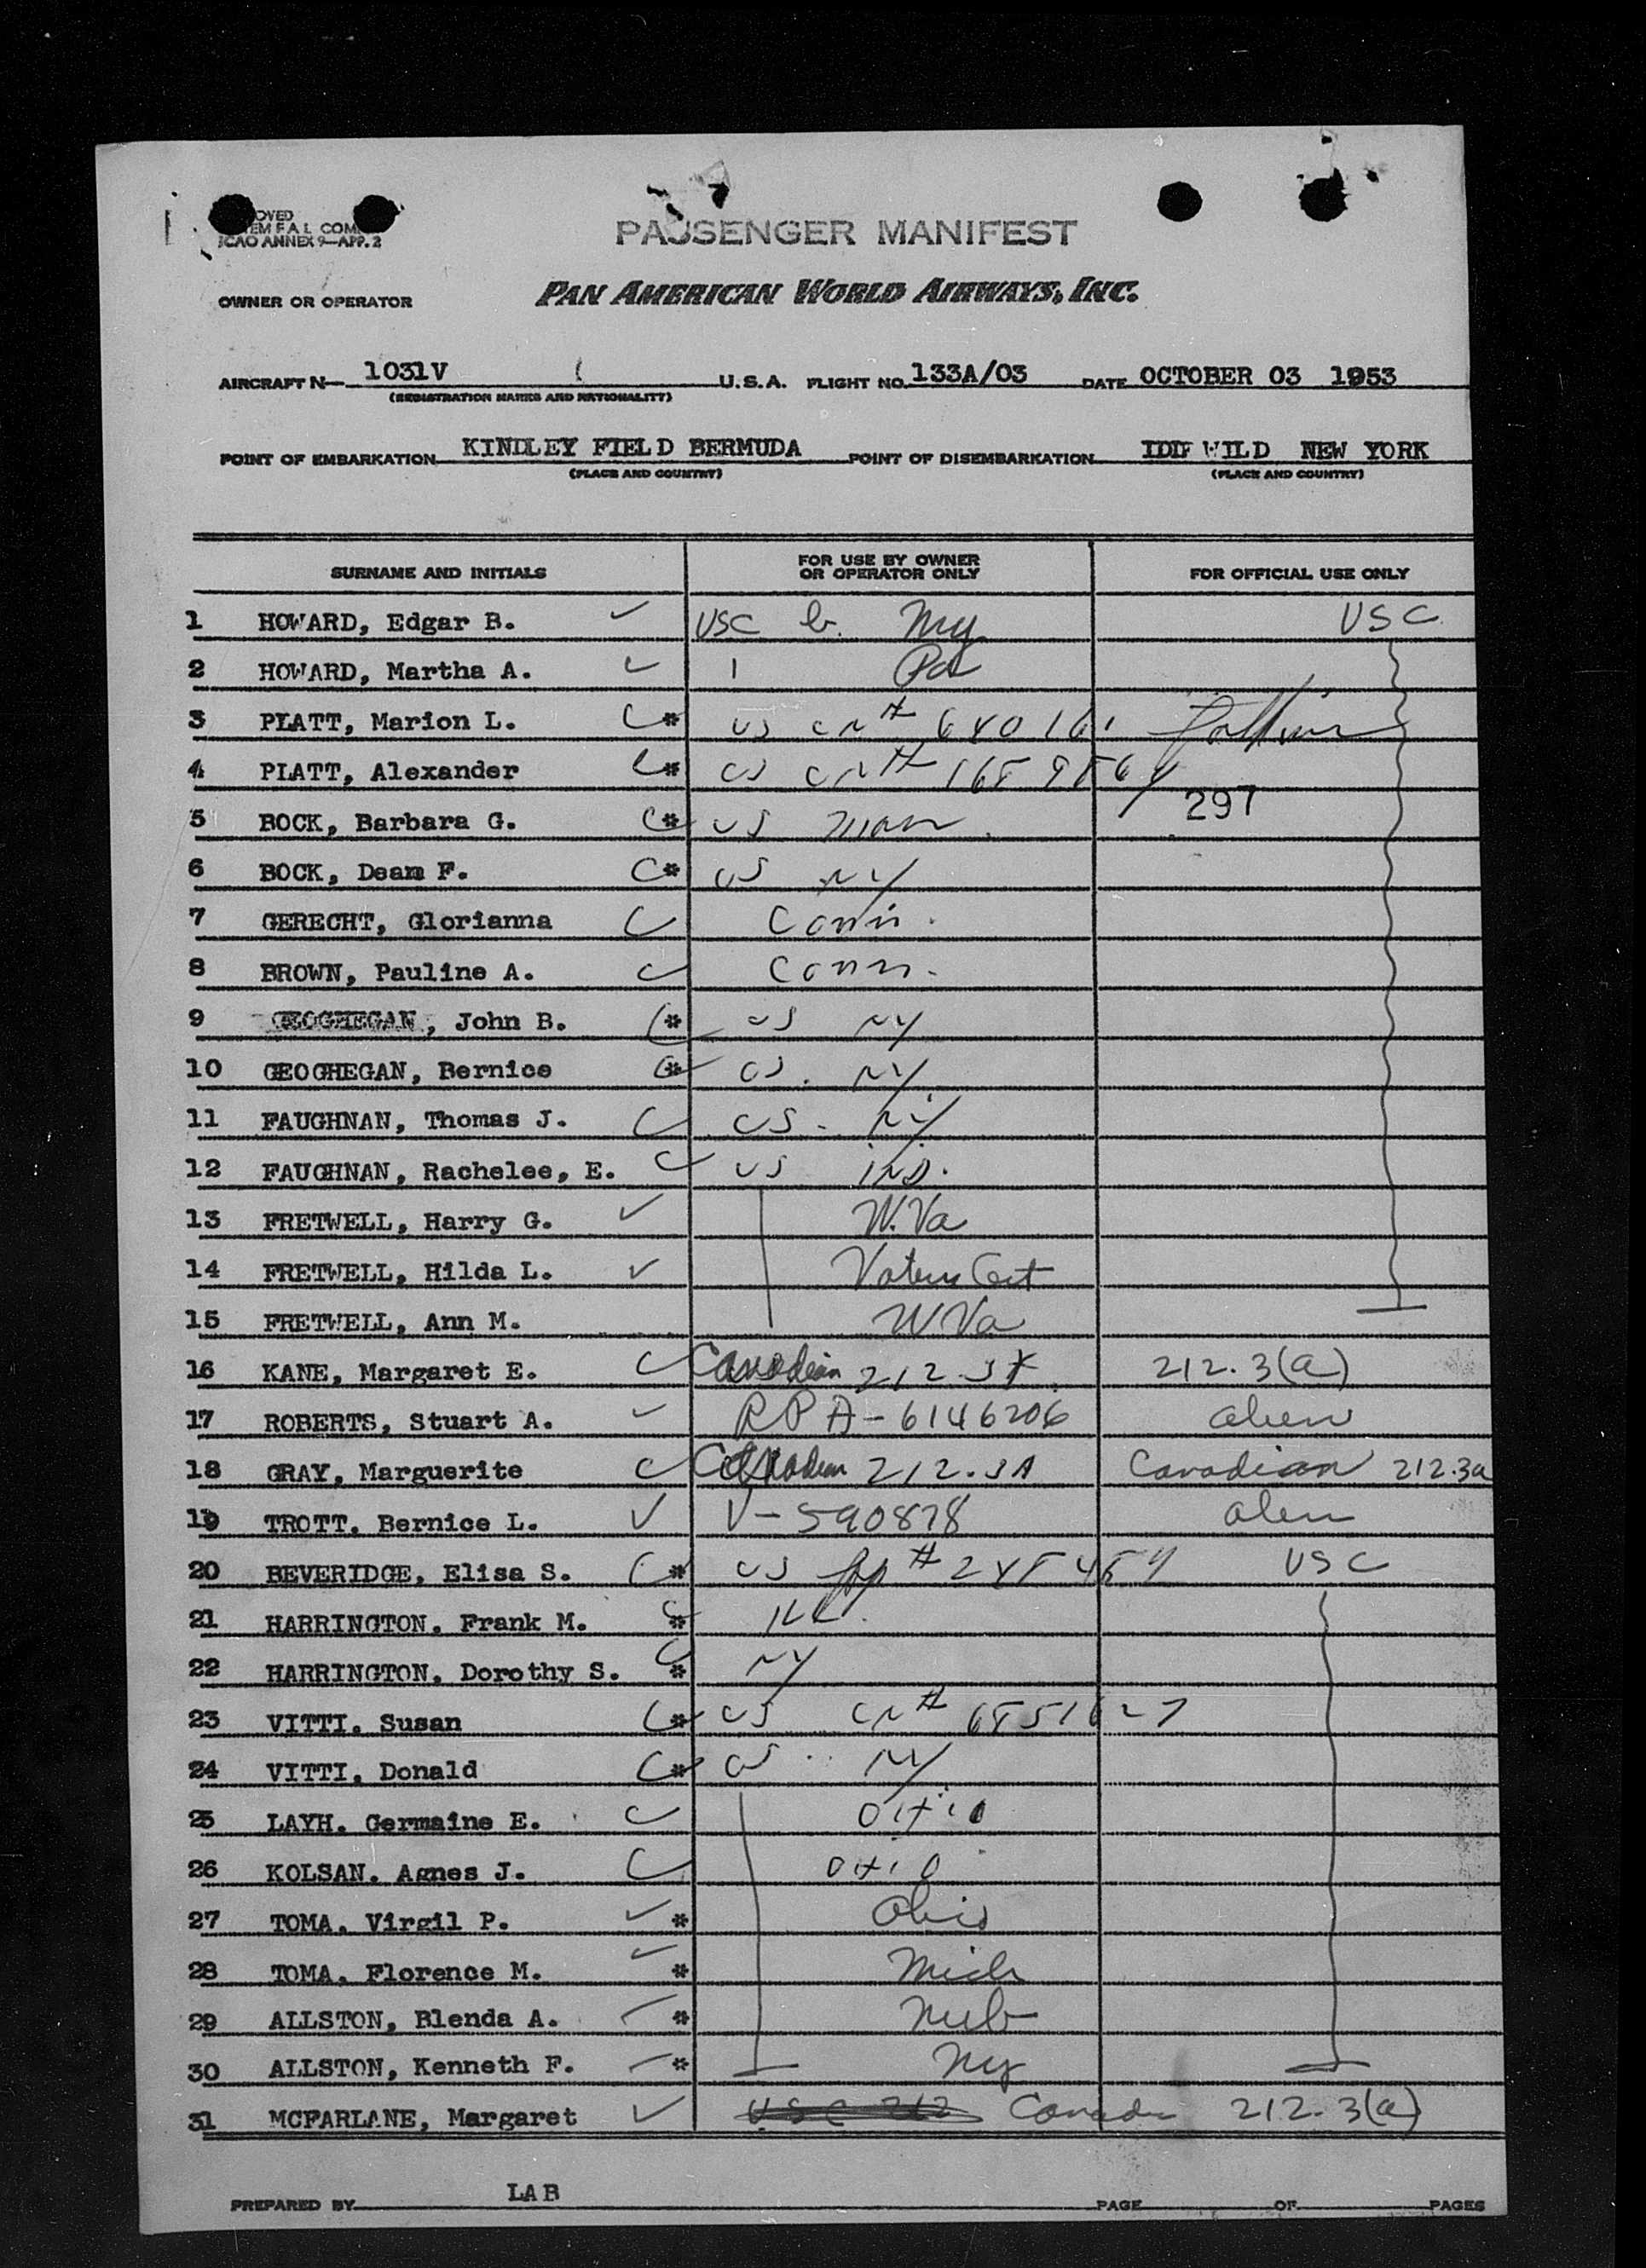 OVED
EM F A L COM
ICAO ANNEX 9—APP. 2
PASSENGER MANIFEST
OWNER OR OPERATOR PAN AMERICAN WORLD AIRWAYS, INC.
AIRCRAFT N— 1031V U.S.A. FLIGHT NO. 133A/03 DATE OCTOBER 03 1953
(REGISTRATION MARKS AND NATIONALITY)
POINT OF EMBARKATION KINDLEY FIELD BERMUDA POINT OF DISEMBARKATION IDLEWILD NEW YORK
(PLACE AND COUNTRY) (PLACE AND COUNTRY)
SURNAME AND INITIALS FOR USE BY OWNER OR OPERATOR ONLY FOR OFFICIAL USE ONLY
1 HOWARD, Edgar B. ✓ USC b. Ny USC
2 HOWARD, Martha A. ✓ Pa
3 PLATT, Marion L. * US CN#
4 PLATT, Alexander * US CN#
297
5 BOCK, Barbara G. * US
6 BOCK, Dean F. * US NY
7 GERECHT, Glorianna Conn.
8 BROWN, Pauline A. Conn.
9 GEOGHEGAN, John B. * US NY
10 GEOGHEGAN, Bernice * US. NY
11 FAUGHNAN, Thomas J. US. NY
12 FAUGHNAN, Rachelee, E. US IND.
13 FRETWELL, Harry G. ✓ W.Va
14 FRETWELL, Hilda L. ✓ Voters Cert
15 FRETWELL, Ann M. W Va
16 KANE, Margaret E. Canadian 212.3 212.3(a)
17 ROBERTS, Stuart A. ✓ RP A-6146206 alien
18 GRAY, Marguerite Canadian 212.3A Canadian 212.3a
19 TROTT. Bernice L. ✓ V-590878 alien
20 BEVERIDGE, Elisa S. * US pp# USC
21 HARRINGTON. Frank M. * ILL.
22 HARRINGTON. Dorothy S. * NY
23 VITTI. Susan * US CN#
24 VITTI. Donald * US NY
25 LAYH. Germaine E. OHIO
26 KOLSAN. Agnes J. OHIO
27 TOMA. Virgil P. ✓ * Ohio
28 TOMA. Florence M. ✓ * Mich
29 ALLSTON, Blenda A. * Neb
30 ALLSTON, Kenneth F. * Ny
31 MCFARLANE, Margaret ✓ USC 212 Canada 212.3(a)
PREPARED BY LAB PAGE OF PAGES